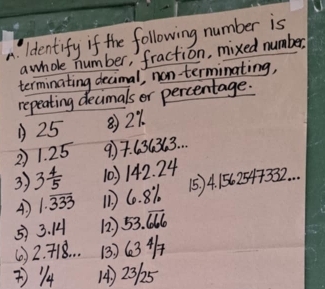 A. Identify if the following number is
a whole number, fraction, mixed number,
terminating decimal, non-terminating,
repeating decimals or percentage.
1) 25
2) 1.25
3.) 3 4/5
4.) 1.3̅3̅3̅
5) 3.14
6) 2.718...
7) 1/4
8.) 2%
9.) 7.636363...
10.) 142.24
11.) 6.8%
12.) 53.6̅6̅6̅
13.) 63 4/7
14.) 23/25
15.) 4.1562547332...